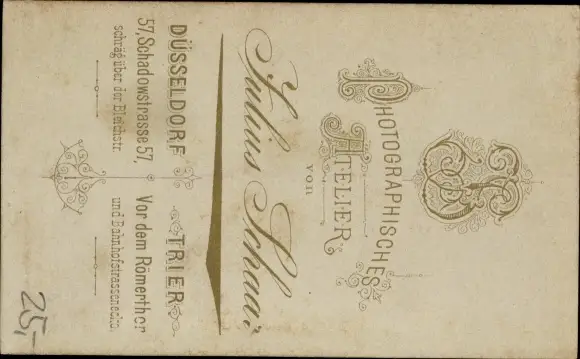 PHOTOGRAPHISCHES
ATELIER
von
Julius Schaar
DÜSSELDORF
57, Schadowstrasse 57,
schrägüber der Bleichstr.
TRIER
Vor dem Römerthor
und Bahnhofstrassenecke.
25,-